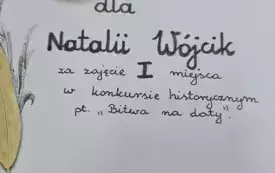 dla
Natalii Wójcik
za zajęcie I miejsca
w konkursie historycznym
pt. „Bitwa na daty".